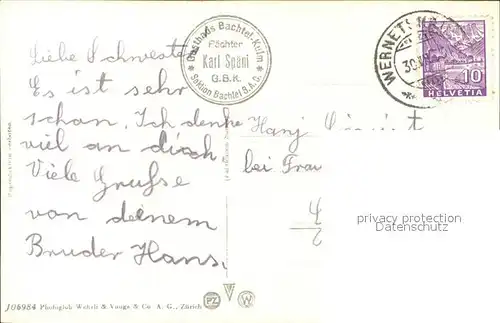 Liebe Schwester
Es ist sehr
schon. Ich denke
viel an dich
Viele Grüsse
von deinem
Bruder Hans.
Gasthaus Bachtel-Kulm
Pächter
Karl Späni
G.B.K.
Sektion Bachtel S.A.C.
10
HELVETIA
Hanj
bei Frau
4
2
privacy protection
Datenschutz
JO6984 Photoglob Wehrli & Vouga & Co A. G., Zürich
PZ
W